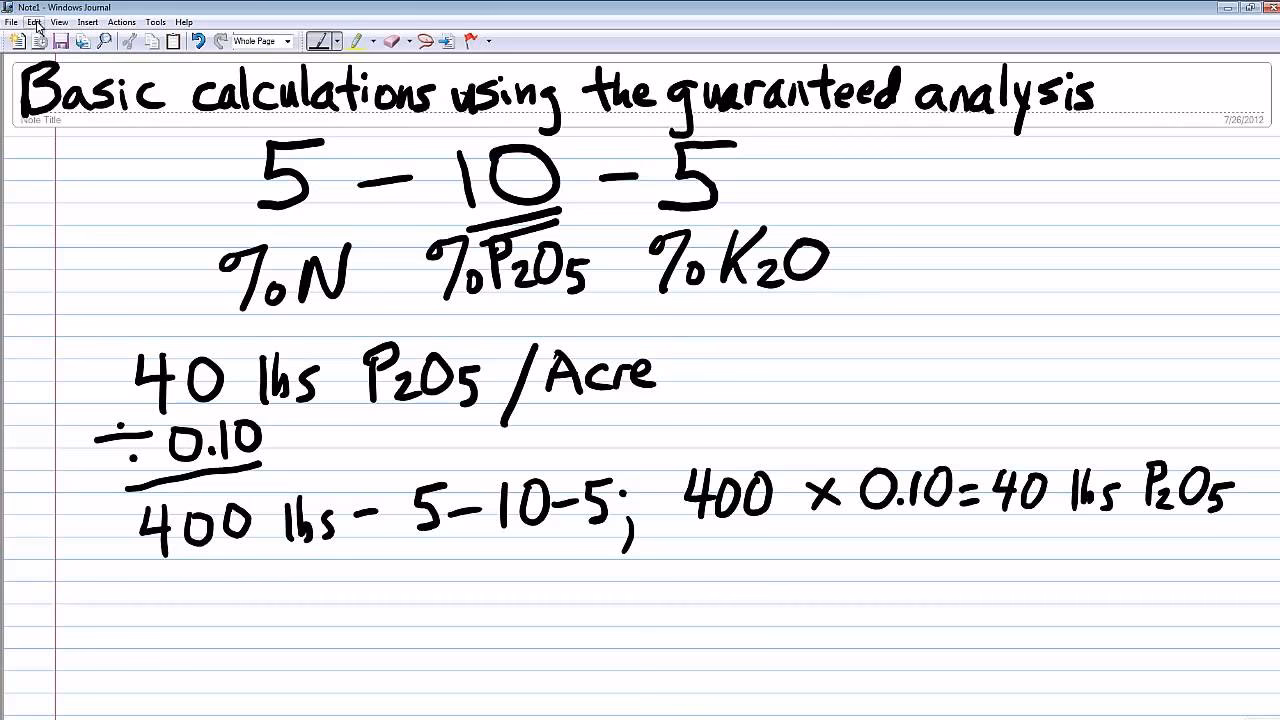 Note1 - Windows Journal
File Edit View Insert Actions Tools Help
Whole Page
Basic calculations using the guaranteed analysis
Note Title 7/26/2012
5 - 10 - 5
%N %P2O5 %K2O
40 lbs P2O5 / Acre
÷ 0.10
400 lbs - 5-10-5; 400 x 0.10 = 40 lbs P2O5